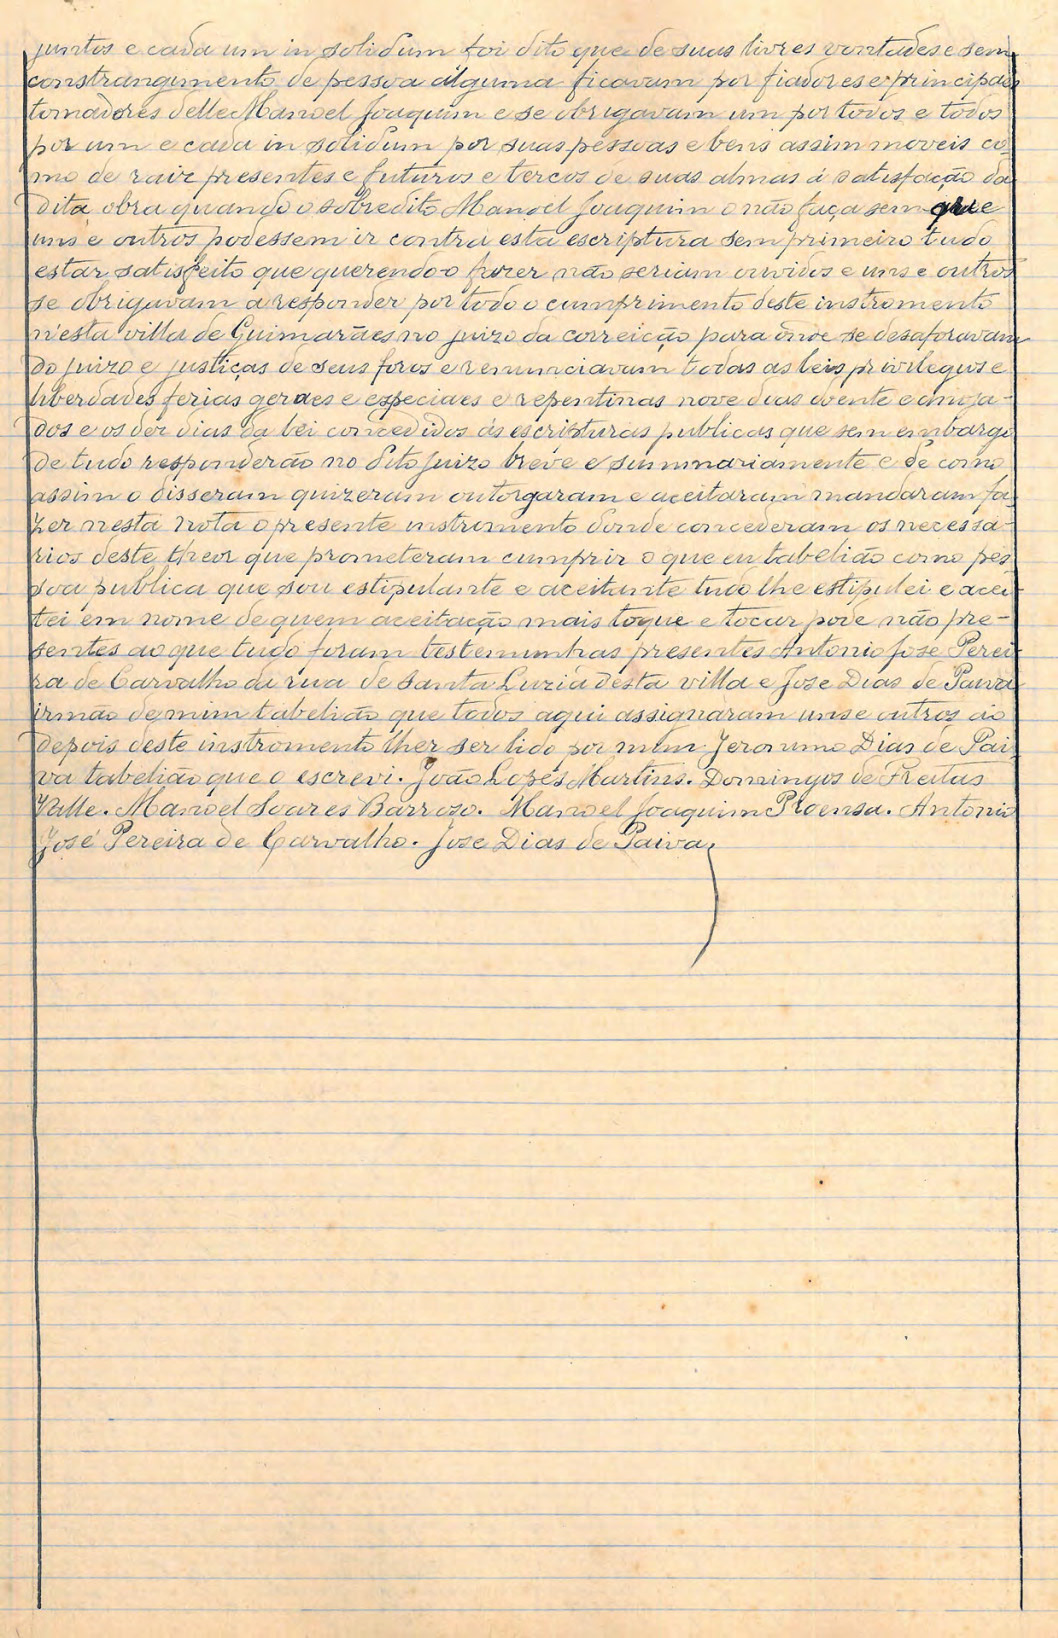 juntos e cada um in solidum foi dito que de suas livres vontades e sem
constrangimento de pessoa alguma ficavam por fiadores e principaes
tomadores delle Manoel Joaquim e se obrigavam um por todos e todos
por um e cada in solidum por suas pessoas e bens assim moveis co
mo de raiz presentes e futuros e terços de suas almas á satisfação da
dita obra quando o sobredito Manoel Joaquim o não faça sem que
uns e outros podessem ir contra esta escriptura sem primeiro tudo
estar satisfeito que querendo-o fazer não seriam ouvidos e uns e outros
se obrigavam a responder por todo o cumprimento deste instromento
n'esta villa de Guimarães no juizo da correição para onde se desaforavam
do juizo e justiças de seus foros e renunciavam todas as leis privilegios e
liberdades ferias geraes e especiaes e repentinas nove dias doente e anoja-
dos e os dez dias da lei concedidos ás escripturas publicas que sem embargo
de tudo responderão no dito juizo breve e summariamente e de como
assim o disseram quizeram outorgaram e aceitaram mandaram fa
zer nesta nota o presente instrumento donde concederam os necessa-
rios deste theor que prometeram cumprir o que eu tabelião como pes
soa publica que sou estipulante e aceitante tudo lhe estipulei e acei-
tei em nome de quem aceitação mais toque e tocar pode não pre-
sentes ao que tudo foram testemunhas presentes Antonio José Perei
ra de Carvalho da rua de Santa Luzia desta villa e Jose Dias de Paiva
irmão de mim tabelião que todos aqui assignaram uns e outros ao
depois deste instromento lher ser lido por mim Jeronumo Dias de Pai
va tabelião que o escrevi. João Lopes Martins. Domingos de Freitas
Valle. Manoel Soares Barroso. Manoel Joaquim Proensa. Antonio
José Pereira de Carvalho. Jose Dias de Paiva,